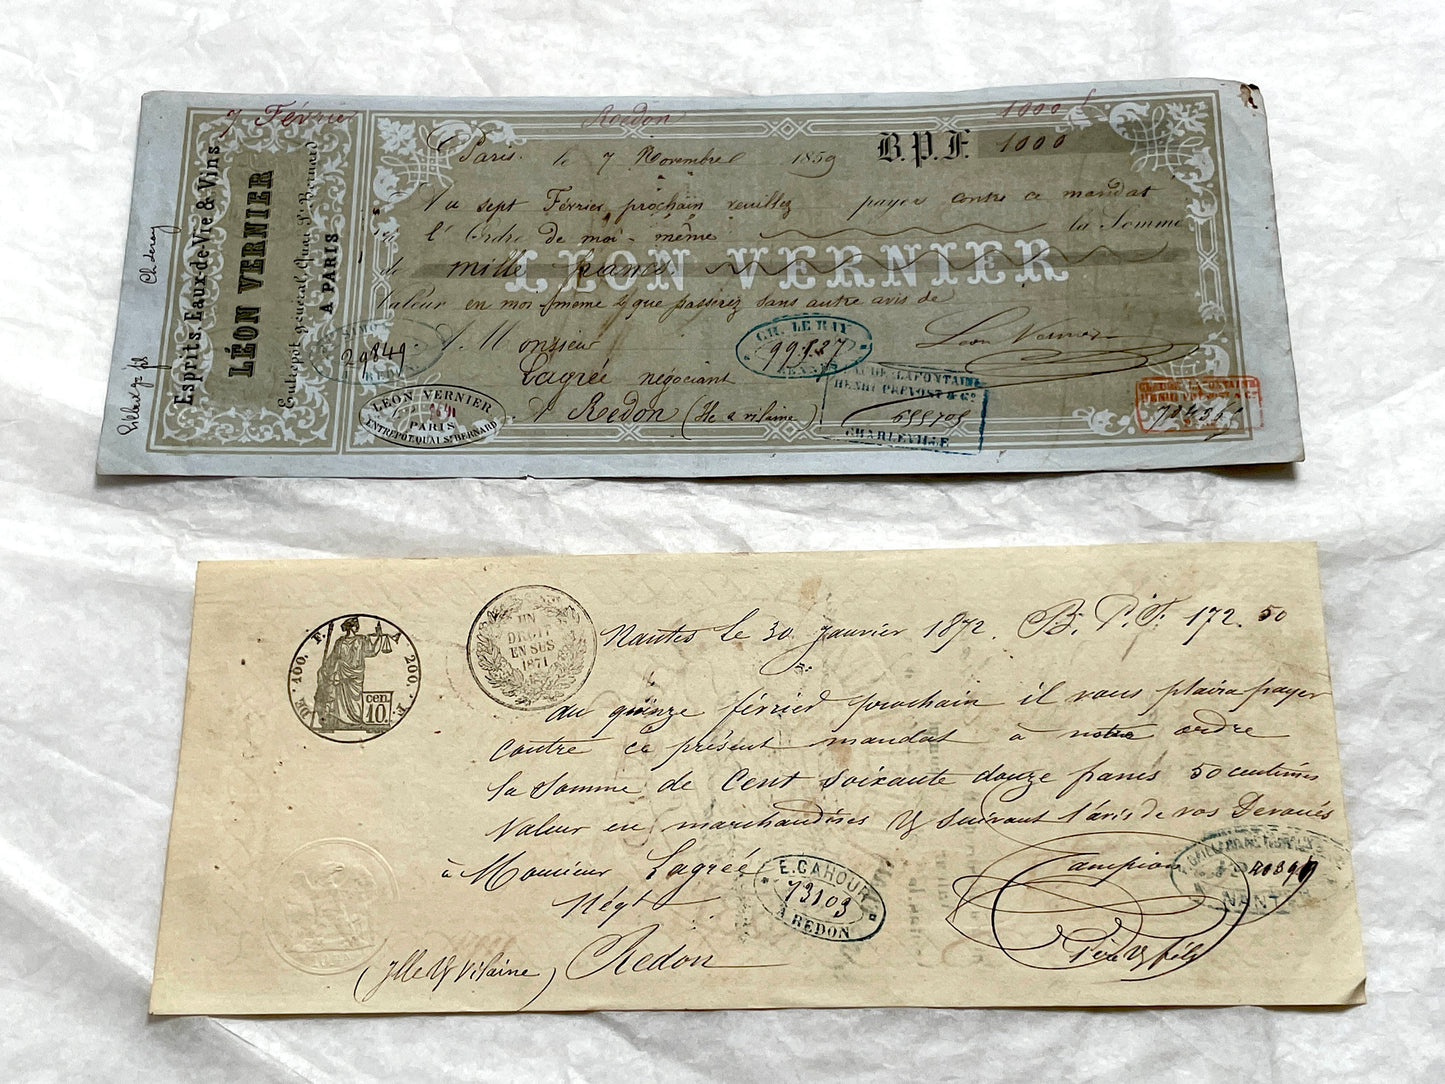 7 Février Redon 1000 f
Paris, le 7 Novembre 1859 B.P.F. 1000
Au sept Février prochain veuillez payer contre ce mandat
à l'Ordre de moi-même la Somme
de mille francs
LÉON VERNIER
Valeur en moi-même & que passerez sans autre avis de
A Monsieur Léon Vernier
Lagrée négociant
à Redon (Ile & vilaine)
Esprits, Eaux-de-Vie & Vins
LÉON VERNIER
Entrepôt général, Quai St. Bernard
A PARIS
29849
REDON
LÉON VERNIER
PARIS
ENTREPOT, QUAI St. BERNARD
CH. LE RAY
99527
RENNES
LAFONTAINE
HENRI PREVOST & Cie
555705
CHARLEVILLE
LAFONTAINE
HENRI PREVOST & Cie
F. A
DE 100. 200. F.
cen
10.
UN
DROIT
EN SUS
1871
Nantes le 30 Janvier 1872. B.P.F. 172.50
Au quinze février prochain il vous plaira payer
contre ce présent mandat à notre ordre
la somme de Cent Soixante douze francs 50 centimes
Valeur en marchandises & suivant l'avis de vos Dévoués
à Monsieur Lagrée Campion
Négt Père & fils
(Ille & Vilaine) Redon
E. CAHOUR
73103
A REDON
NANTES